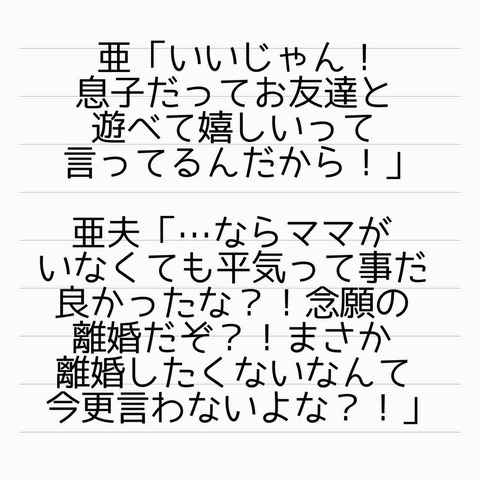 亜「いいじゃん！
息子だってお友達と
遊べて嬉しいって
言ってるんだから！」
亜夫「…ならママが
いなくても平気って事だ
良かったな？！念願の
離婚だぞ？！まさか
離婚したくないなんて
今更言わないよな？！」